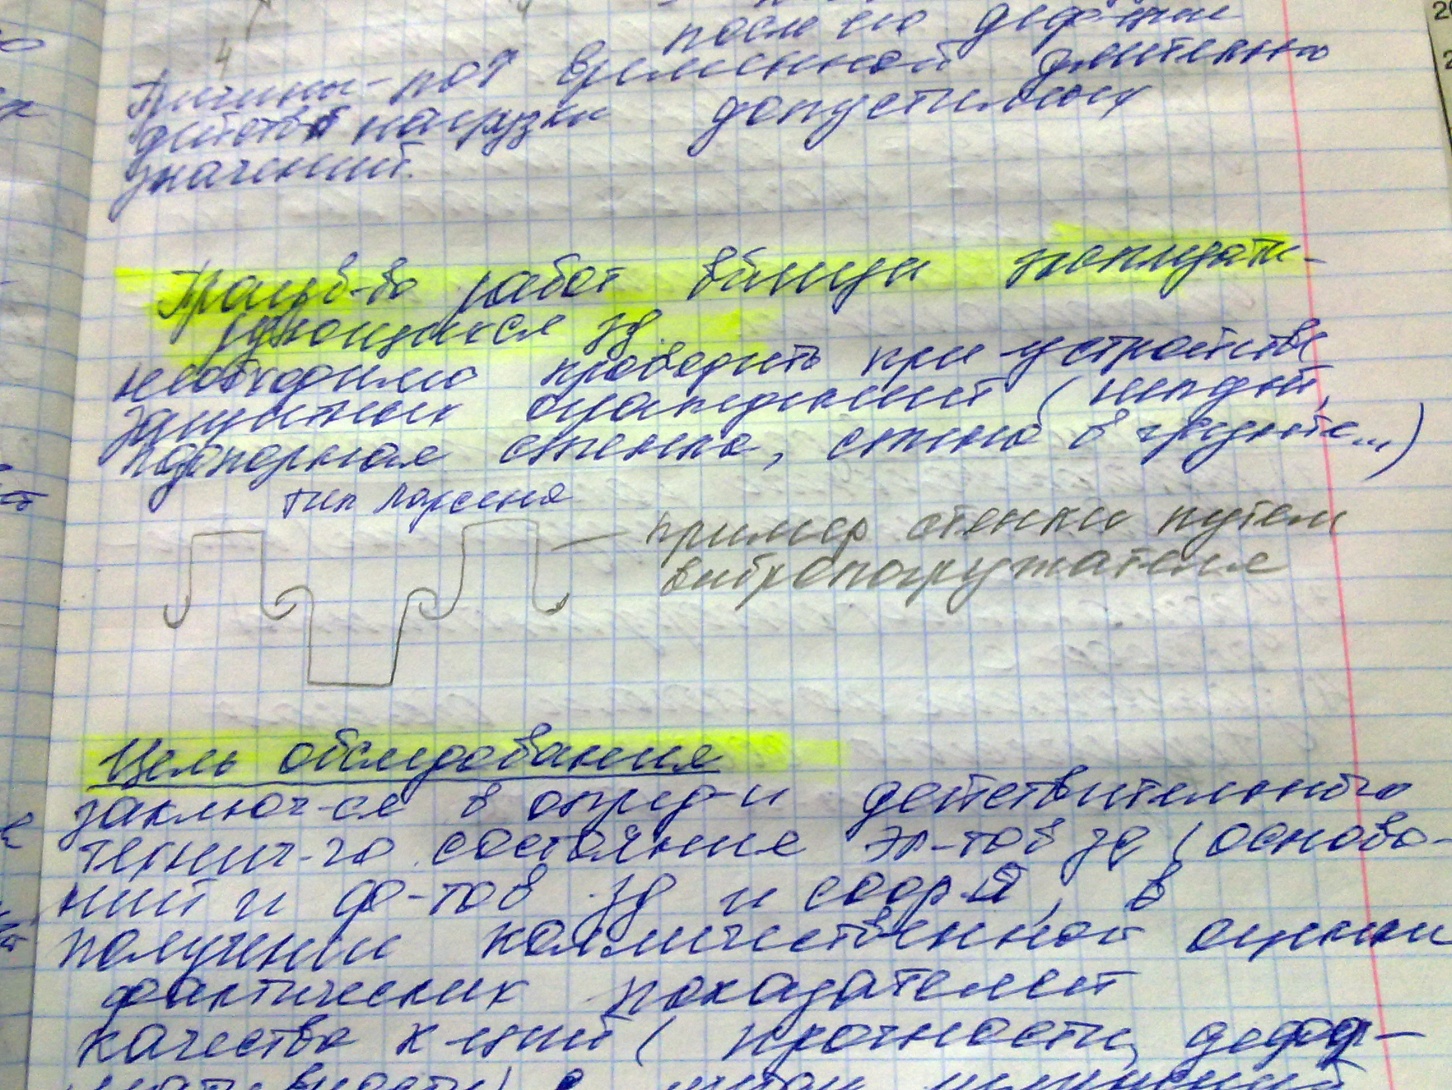 после деф-ции
Причины-пов временной длительно
действ нагрузки допустимых
значений.
Произв-во работ вблизи эксплуати-
рующихся зд.
необходимо проводить при устройстве
защитных ограждений (шпунт,
подпорная стенка, стена в грунте...)
тип Ларсена
пример стенки путем
вибропогружателя
Цель обследования
заключ-ся в опред-и действительного
технич-го состояния эл-тов зд (основа-
ний и ф-тов зд и соор-й, в
получении количественной оценки
фактических показателей
качества к-ций (прочности, дефор-